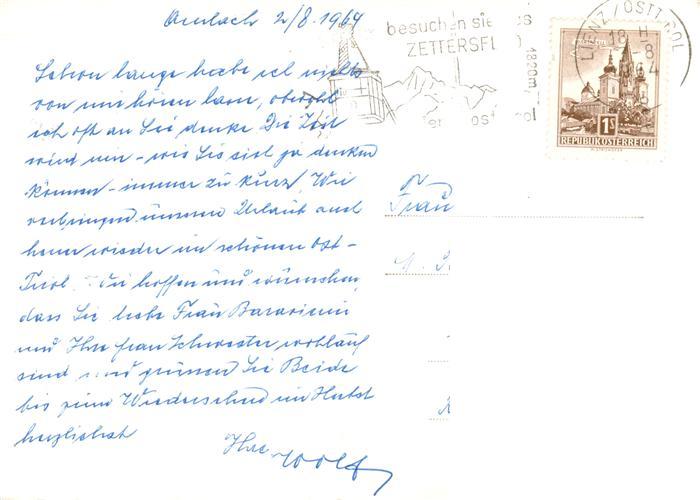 Amlach 2/8. 1964
Schon lange habe ich nichts
von mir hören lassen, obwohl
ich oft an Sie denke. Die Zeit
wird uns – wie Sie sich ja denken
können – immer zu kurz. Wir
verbringen unseren Urlaub auch
heuer wieder im schönen Ost-
Tirol. Wir hoffen und wünschen,
dass Sie liebe Frau
und Ihre Frau Schwester wohlauf
sind und grüssen Sie Beide
bis zum Wiedersehen im Herbst
herzlichst
Ihre Wolf
besuchen sie
ZETTERSF
1820m
LIENZ / OSTTIROL
18 H
1S
REPUBLIK ÖSTERREICH
Frau